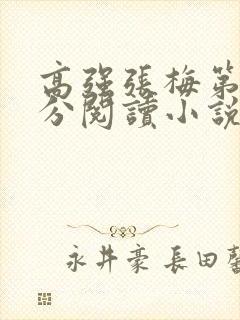 高強張梅第
分閱讀小說
永井豪 長田馨